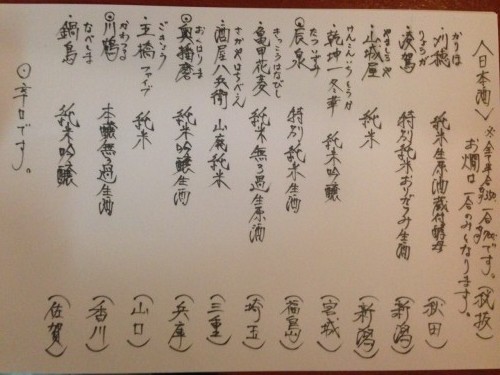 〈日本酒〉
お燗は一合のみくなります。
かりほ
・刈穂 純米生原酒蔵付酵母 (秋田)
りょうが
・凌駕 特別純米おりがらみ生酒 (新潟)
やましろや
・山城屋 純米 (新潟)
けんこんいっ
・乾坤一 冬華 純米吟醸 (宮城)
たついずみ
⦿辰泉 特別純米生酒 (福島)
きっこうはなびし
・亀甲花菱 純米無ろ過生原酒 (埼玉)
さかやはちべえ
・酒屋八兵衛 山廃純米 (三重)
おくはりま
⦿奥播磨 純米吟醸生酒 (兵庫)
ごきょう
・五橋 ファイブ 純米 (山口)
かわつる
⦿川鶴 本醸無ろ過生酒 (香川)
なべしま
・鍋島 純米吟醸 (佐賀)
⦿辛口です。